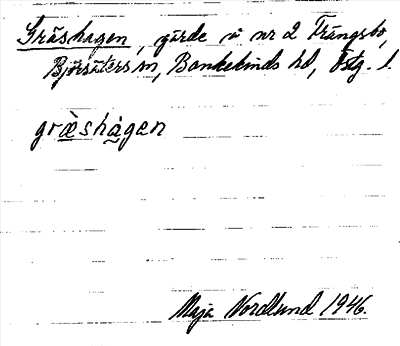 Gräshagen, gärde å nr 2 Trängsbo,
Björsäters sn, Bankekinds hd, Östg. l.
græ̀shàgen
Maja Nordlund 1946.